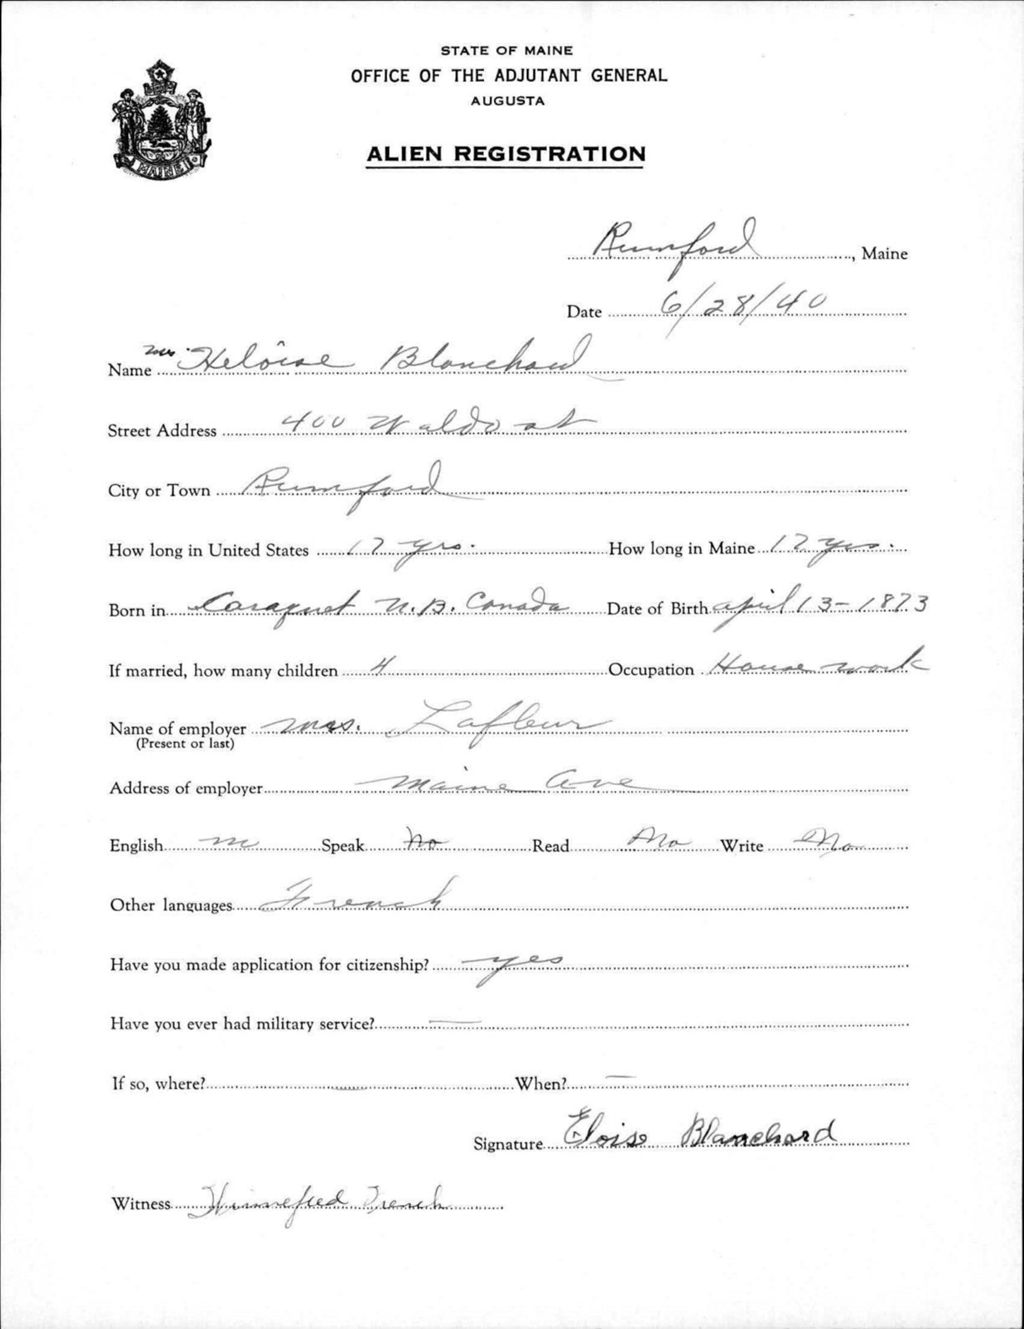 STATE OF MAINE
OFFICE OF THE ADJUTANT GENERAL
AUGUSTA
MAINE
ALIEN REGISTRATION
Rumford, Maine
Date 6/28/40
Name Mrs. Heloise Blanchard
Street Address 400 Waldo st
City or Town Rumford
How long in United States 17 yrs. How long in Maine 17 yrs.
Born in Caraquet N.B. Canada Date of Birth april 13-1873
If married, how many children 4 Occupation House work
Name of employer Mrs. Lafleur
(Present or last)
Address of employer Maine Ave
English Speak No Read No Write No
Other languages French
Have you made application for citizenship? yes
Have you ever had military service? —
If so, where? — When? —
Signature Eloise Blanchard
Witness Winnefred French